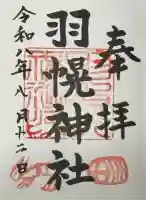 奉拝
羽幌神社
令和八年八月十二日